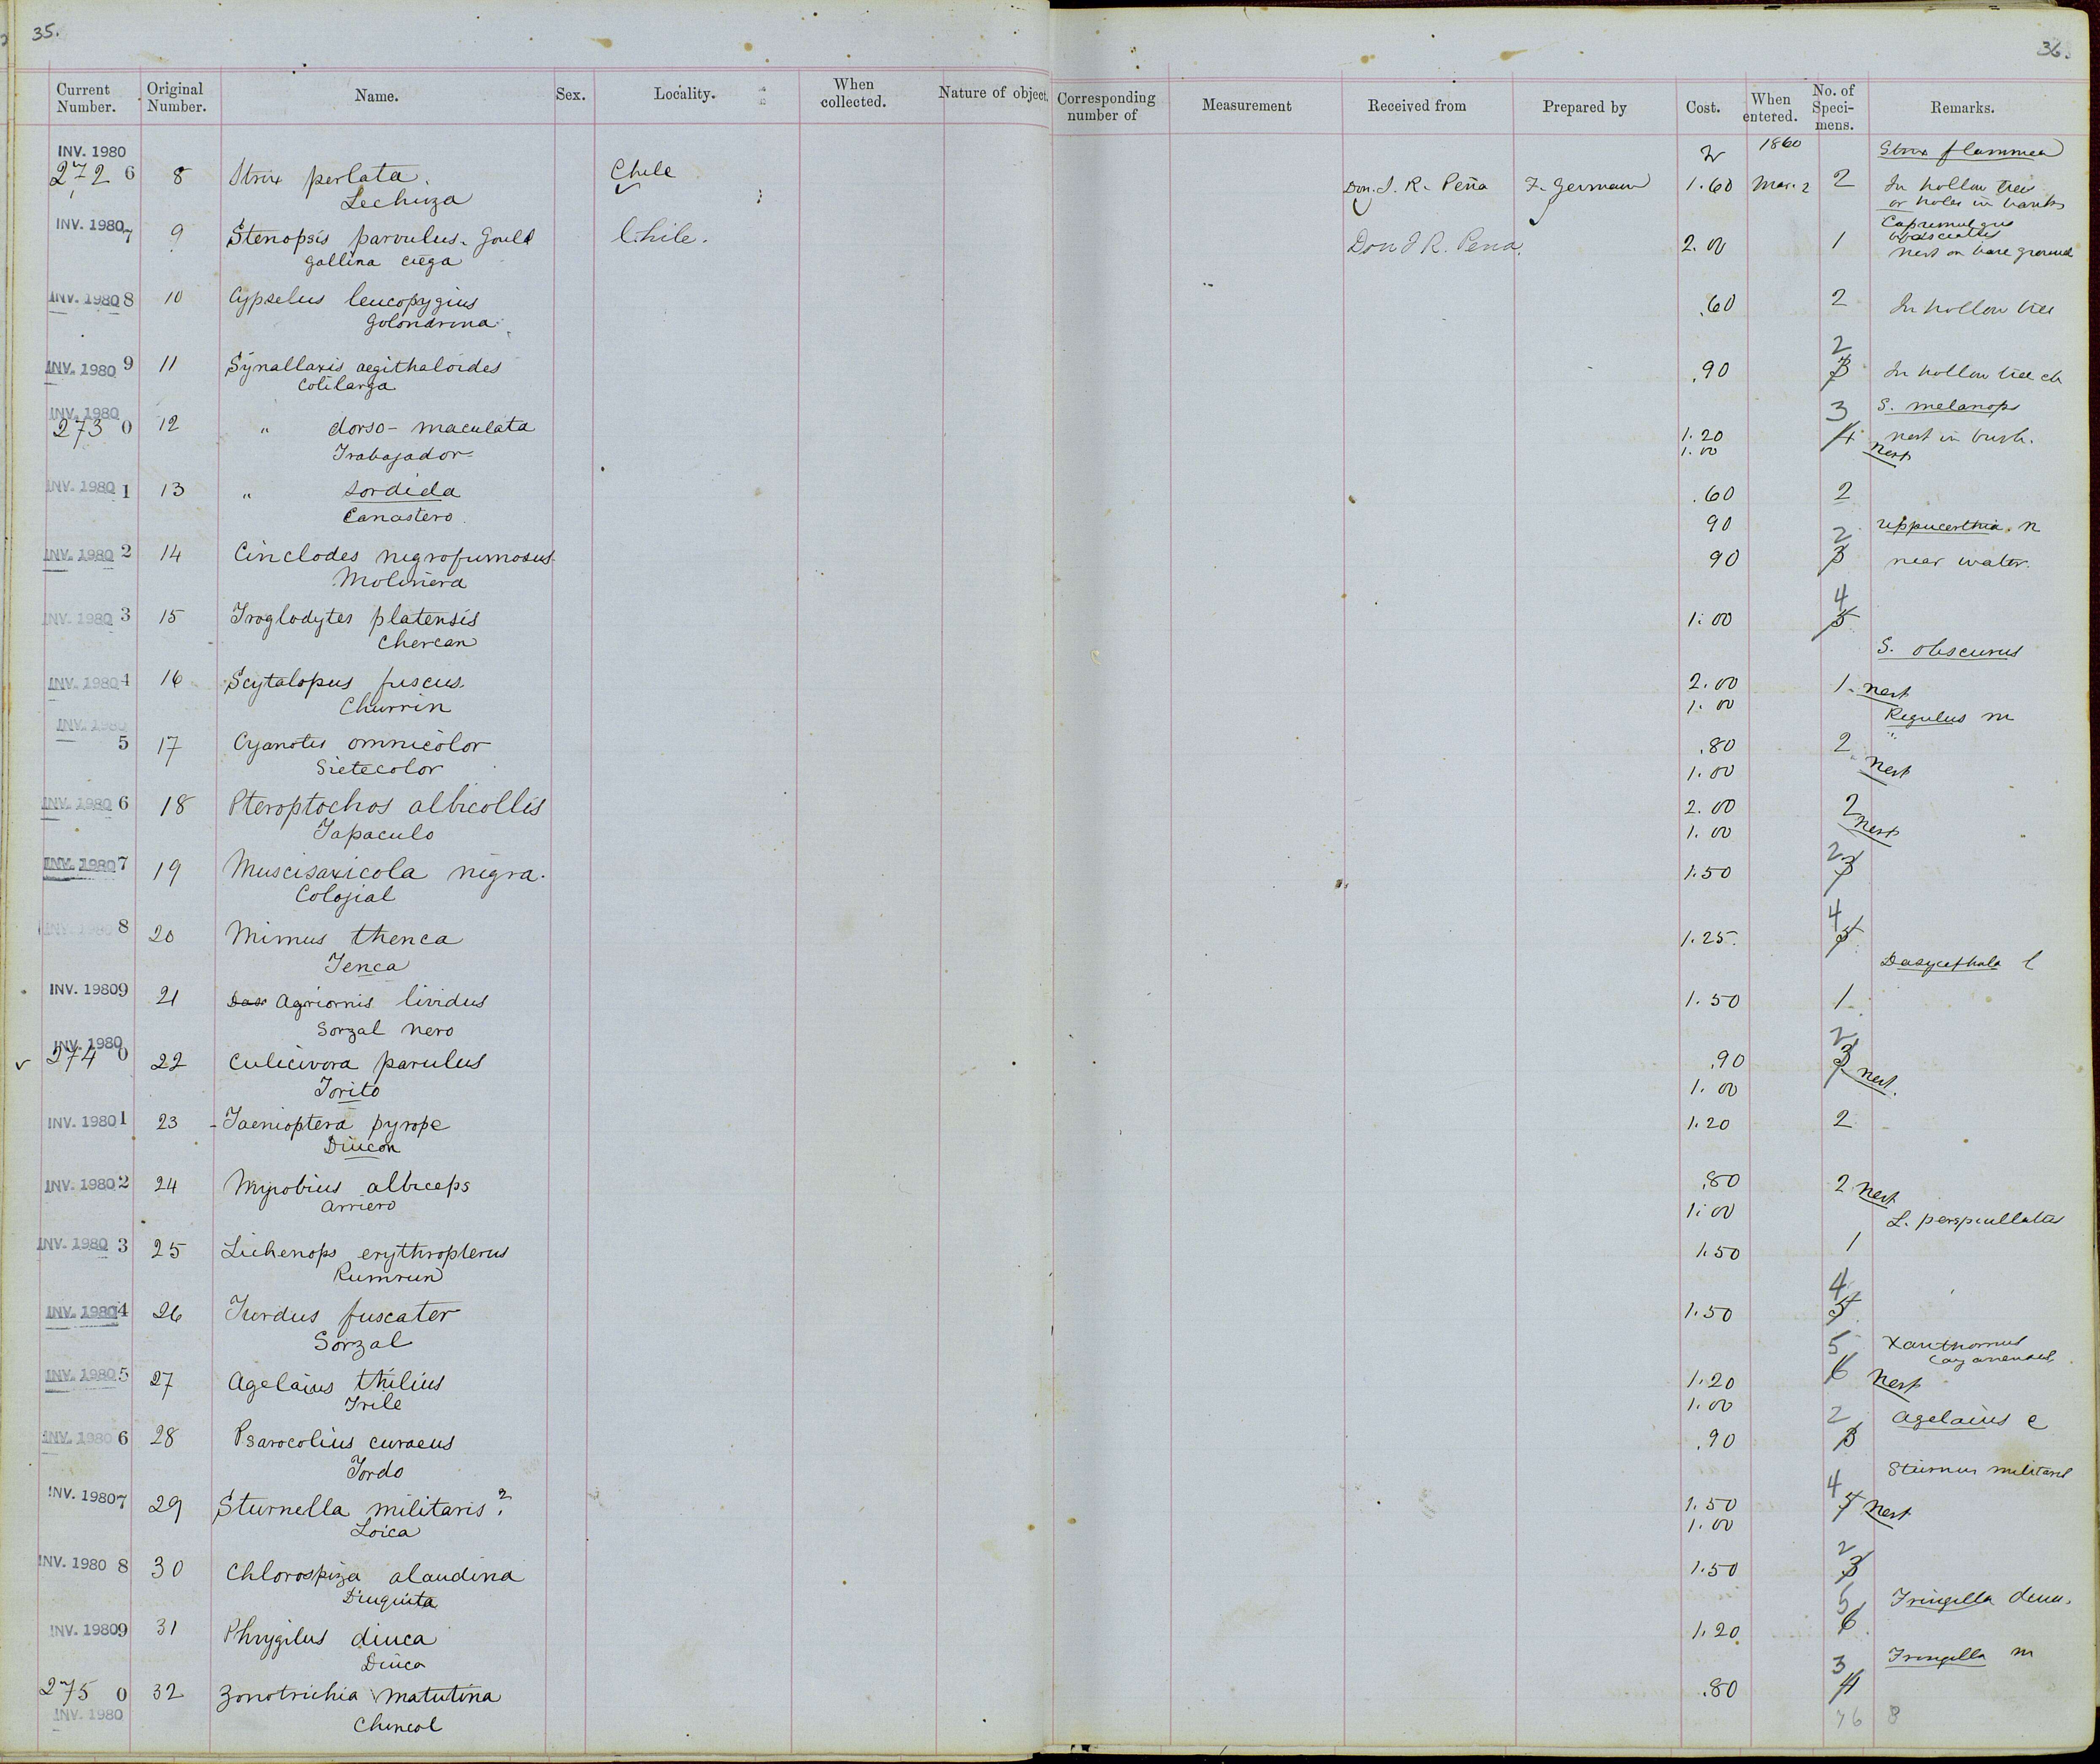 35.
36.
Current Number. Original Number. Name. Sex. Locality. When collected. Nature of object. Corresponding number of Measurement Received from Prepared by Cost. When entered. No. of Speci-mens. Remarks.
INV. 1980 1860 Strix flammea
272 6 8 Strix perlata. Chile Don. J. R. Peña F. Germain 1.60 Mar. 2 2 In hollow tree
Lechuza or holes in banks
INV. 1980 7 9 Stenopsis parvulus. Gould Chile. Don J R. Pena. 2.00 1 Caprimulgus
Gallina ciega nest on bare ground
INV. 1980 8 10 Cypselus leucopygius .60 2 In hollow tree
Golondrina
2
INV. 1980 9 11 Synallaxis aegithaloides .90 3 In hollow tree
Colilarga
INV. 1980 3 S. melanops
273 0 12 " dorso-maculata 1.20 4 nest in bush.
Trabajador 1.00 Nest
INV. 1980 1 13 " sordida .60 2
Canastero 90 Uppucerthia. n
2
INV. 1980 2 14 Cinclodes nigrofumosus 90 3 near water.
Molinera
4
INV. 1980 3 15 Troglodytes platensis 1.00 5
Chercan S. obscurus
INV. 1980 4 16 Scytalopus fuscus. 2.00 1. nest
Churrin 1.00
INV. 1980 Regulus m
5 17 Cyanotis omnicolor .80 2 "
Sietecolor 1.00 Nest
INV. 1980 6 18 Pteroptochos albicollis 2.00 2
Tapaculo 1.00 nest
INV. 1980 7 19 Muscisaxicola nigra. 1.50 2 3
Colojial
4
INV. 1980 8 20 Mimus thenca 1.25. 5
Tenca Dasycephala l
INV. 1980 9 21 Das Agriornis lividus 1.50 1
Sorzal nero
INV. 1980 2
274 0 22 Culicivora parulus .90 3 nest.
Torito 1.00
INV. 1980 1 23 Taenioptera pyrope 1.20 2
Diucon
INV. 1980 2 24 Myiobius albiceps .80 2 Nest
Arriero 1.00 L. perspicillatus
INV. 1980 3 25 Lichenops erythropterus 1.50 1
Rumrun
4
INV. 1980 4 26 Turdus fuscater 1.50 5
Sorzal 5 Xanthornus
cayanensis
INV. 1980 5 27 Agelaius thilius 1.20 6 Nest
Trile 1.00
2 Agelaius c
INV. 1980 6 28 Psarocolius curaeus .90 3
Tordo Sturnus militaris
4
INV. 1980 7 29 Sturnella militaris? 1.50 5 Nest
Loica 1.00
2
INV. 1980 8 30 Chlorospiza alaudina 1.50 3
Diuquita 5 Fringilla diuca.
INV. 1980 9 31 Phrygilus diuca 1.20 6
Diuca 3 Fringilla m
275 0 32 Zonotrichia matutina .80 4
INV. 1980 Chincol 76 8